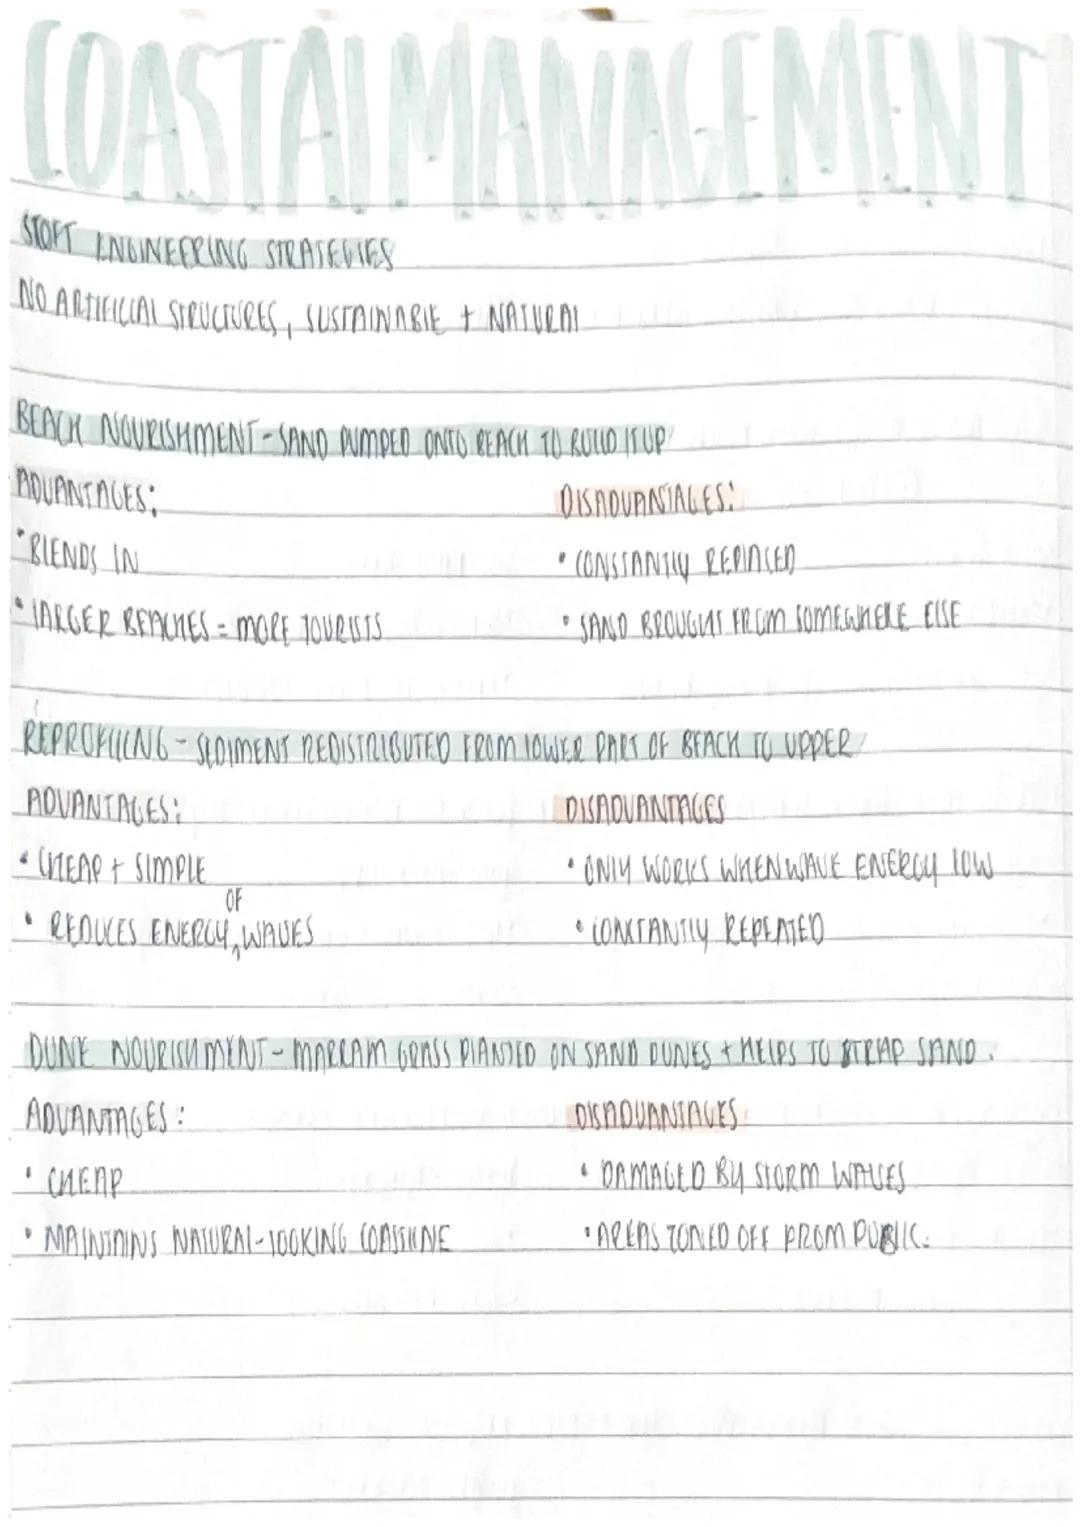 COASTAL MANAGEMENT
STOFT ENGINEERING STRATEGIES
NO ARTIFICIAL STRUCTURES, SUSTAINABLE + NATURAL
BEACH NOURISHMENT - SAND PUMPED ONTO BEACH TO BUILD IT UP
ADVANTAGES:
DISADVANTAGES:
• BLENDS IN
• CONSTANTLY REPLACED
• LARGER BEACHES = MORE TOURISTS
• SAND BROUGHT FROM SOMEWHERE ELSE
REPROFILING - SEDIMENT REDISTRIBUTED FROM LOWER PART OF BEACH TO UPPER
ADVANTAGES:
DISADVANTAGES
• CHEAP + SIMPLE
• ONLY WORKS WHEN WAVE ENERGY LOW
• REDUCES ENERGY OF WAVES
• CONSTANTLY REPEATED
DUNE NOURISHMENT - MARRAM GRASS PLANTED ON SAND DUNES + HELPS TO STRAP SAND.
ADVANTAGES:
DISADVANTAGES
• CHEAP
• DAMAGED BY STORM WAVES
• MAINTAINS NATURAL-LOOKING COASTLINE
• AREAS ZONED OFF FROM PUBLIC.